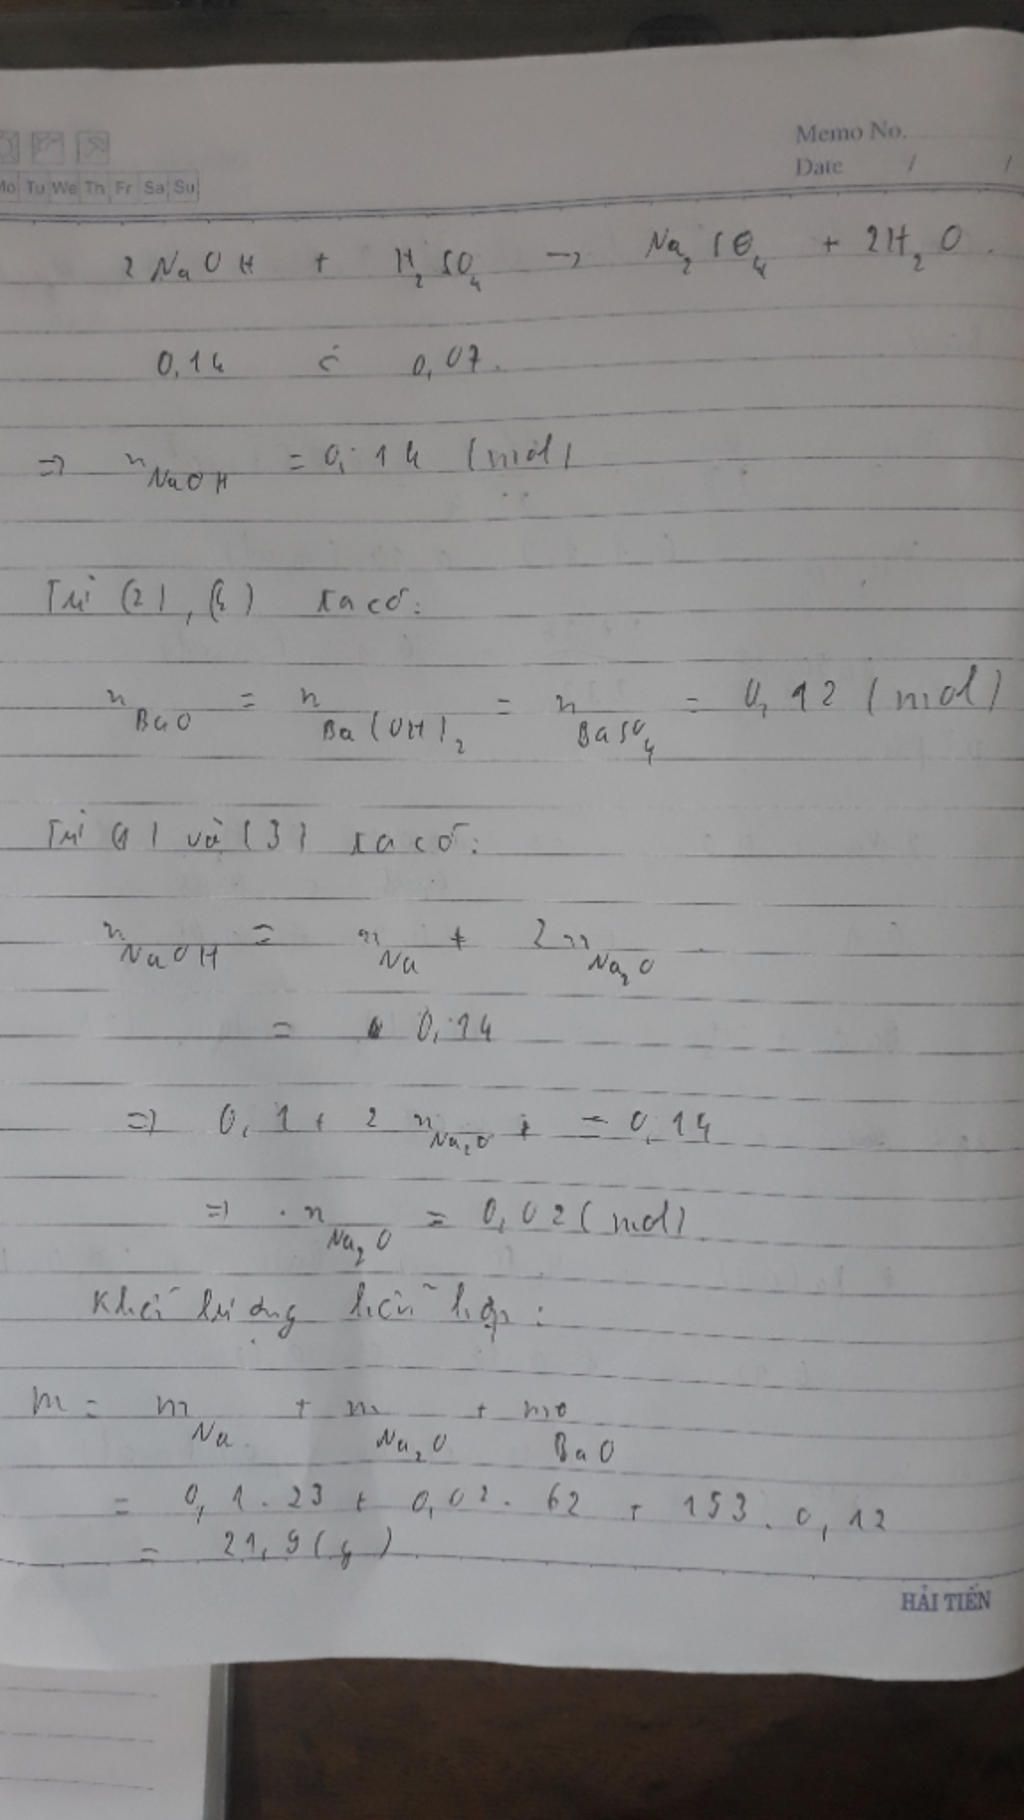 Memo No.
Date / /
Mo Tu We Th Fr Sa Su
2NaOH + H₂SO₄ → Na₂SO₄ + 2H₂O.
0,14 ← 0,07.
⇒ n NaOH = 0,14 (mol)
Từ (2), (4) ta có:
n BaO = n Ba(OH)₂ = n BaSO₄ = 0,12 (mol)
Từ (1) và (3) ta có:
n NaOH = n Na + 2n Na₂O
= 0,14
⇒ 0,1 + 2 n Na₂O = 0,14
⇒ n Na₂O = 0,02 (mol)
Khối lượng hỗn hợp:
m = m Na + m Na₂O + m BaO
= 0,1.23 + 0,02.62 + 153.0,12
= 21,9 (g)
HẢI TIẾN